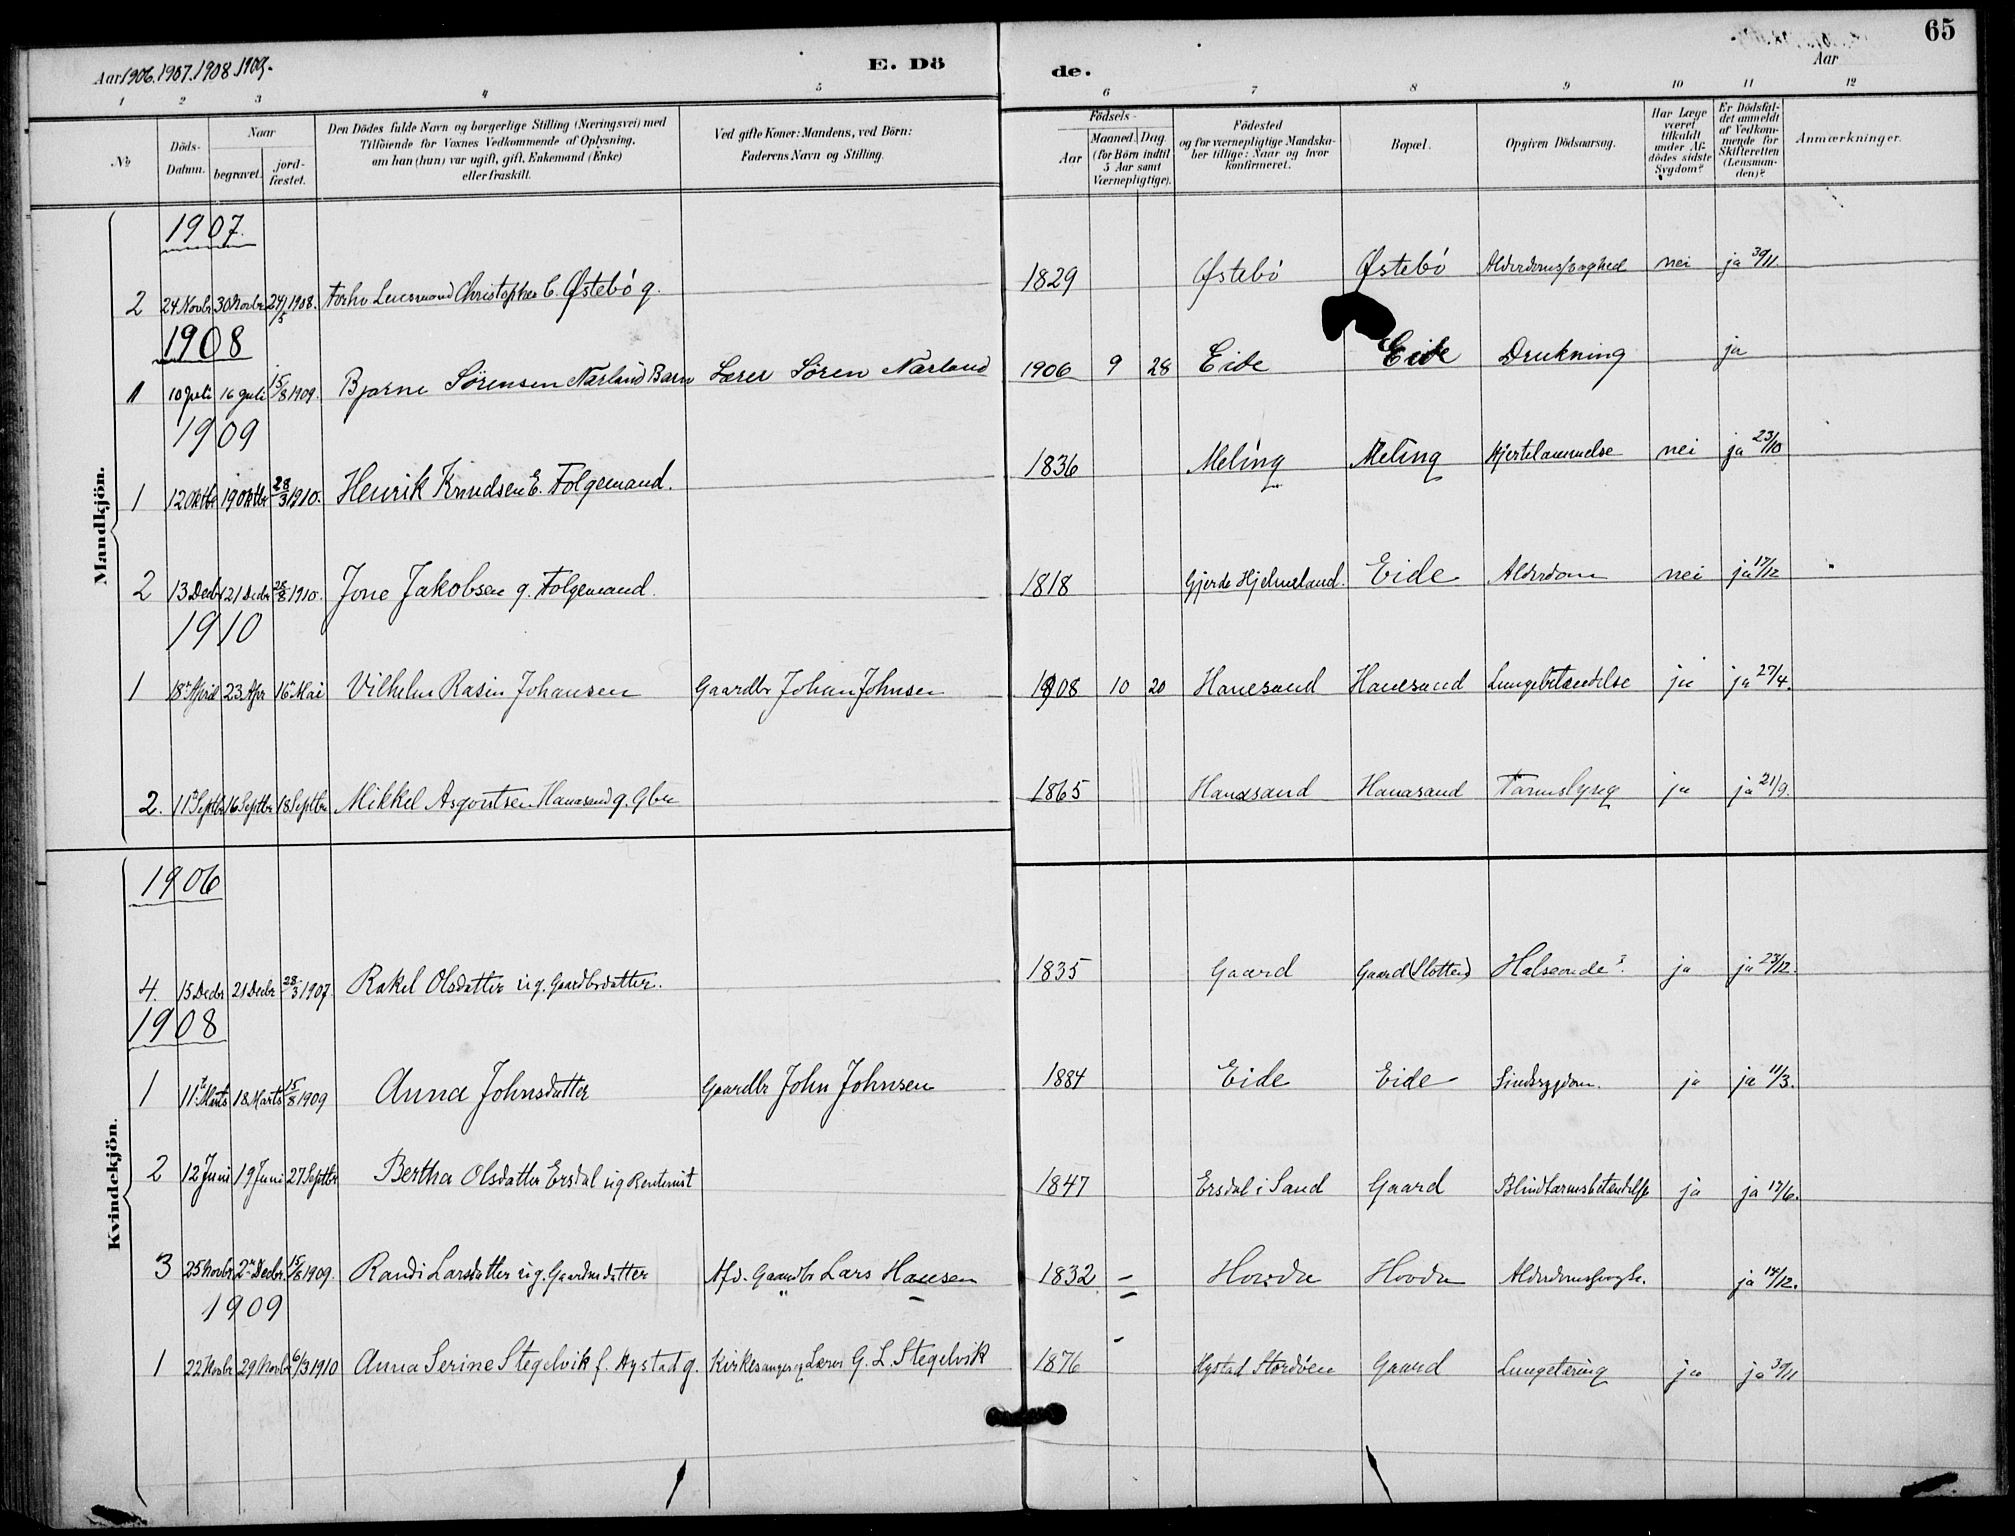 Aar 1906. 1907. 1908. 1909.
E. Dö
de.
Aar
65
1 2 3 4 5
6 7 8 9 10 11 12
No
Döds-Datum.
Naar
begravet.
jord-fæstet.
Den Dödes fulde Navn og borgerlige Stilling (Næringsvei) med
Tilföiende for Voxnes Vedkommende af Oplysning,
om han (hun) var ugift, gift, Enkemand (Enke)
eller fraskilt.
Ved gifte Koner: Mandens, ved Börn:
Faderens Navn og Stilling.
Födsels-
Aar
Maaned. Dag.
(for Börn indtil
5 Aar samt
Værnepligtige).
Födested
og for værnepligtige Mandska-
ber tillige: Naar og hvor
konfirmeret.
Bopæl.
Opgiven Dödsaarsag.
Har Læge
været
tilkaldt
under Af-
dödes sidste
Sygdom?
Er Dödsfal-
det anmeldt
af Vedkom-
mende for
Skifteretten
(Lensman-
den)?
Anmærkninger.
Mandkjön.
1907.
2 24 Novbr 30 Novbr 24/5 1908. Forhv Lensmand Christopher C. Østebö g. 1829 Østebö Østebö Alderdomssvaghed nei ja 30/11
1908
1 10 Juli 16 Juli 15/8 1909. Bjarne Sörensen Nærland Barn Lærer Sören Nærland 1906 9 28 Eide Eide Drukning ja
1909
1 12 Oktbr 19 Oktbr 28/3 1910. Henrik Knudsen E. Folgemand. 1836 Meling Meling Hjertelammelse nei ja 23/10
2 13 Decbr 21 Decbr 28/8 1910. Jone Jakobsen g. Folgemand. 1818 Gjerde Hjelmeland. Eide Alderdom nei ja 17/12
1910
1 18de April 23 Apr 16 Mai Vilhelm Rasin Johansen Gaardbr Johan Johnsen 1908 10 20 Hanesand Hanesand Lungebetændelse ja ja 27/4.
2. 11 Septbr 16 Septbr 18 Septbr Mikkel Asgautsen Hanasand g. Gbr 1865 Hanasand Hanasand Tarmslyng ja ja 21/9.
Kvindekjön.
1906
4. 15 Decbr 21 Decbr 28/3 1907. Rakel Olsdatter ug. Gaardbrdatter. 1835 Gaard Gaard (Slotten) Halseonde? ja ja 23/12.
1908
1 11te Marts 18 Marts 15/8 1909 Anna Johnsdatter Gaardbr John Johnsen 1884 Eide Eide Sindssygdom. ja ja 11/3.
2 12 Juni 19 Juni 27 Septbr Bertha Olsdatter Ersdal ug Rentenist 1847 Ersdal i Sand Gaard Blindtarmsbetændelse ja ja 17/6.
3 25 Novbr 2 Decbr. 15/8 1909. Randi Larsdatter ug. Gaardmdatter Afd. Gaardbr Lars Hansen 1832 Hovda Hovda Alderdomssvaghe. ja 14/12.
1909
1 22 Novbr 29 Novbr 6/3 1910 Anna Serine Stegelvik f. Hystad g. Kirkesanger og Lærer G. L. Stegelvik 1876 Hystad Stordöen Gaard Lungetæring ja ja 30/11